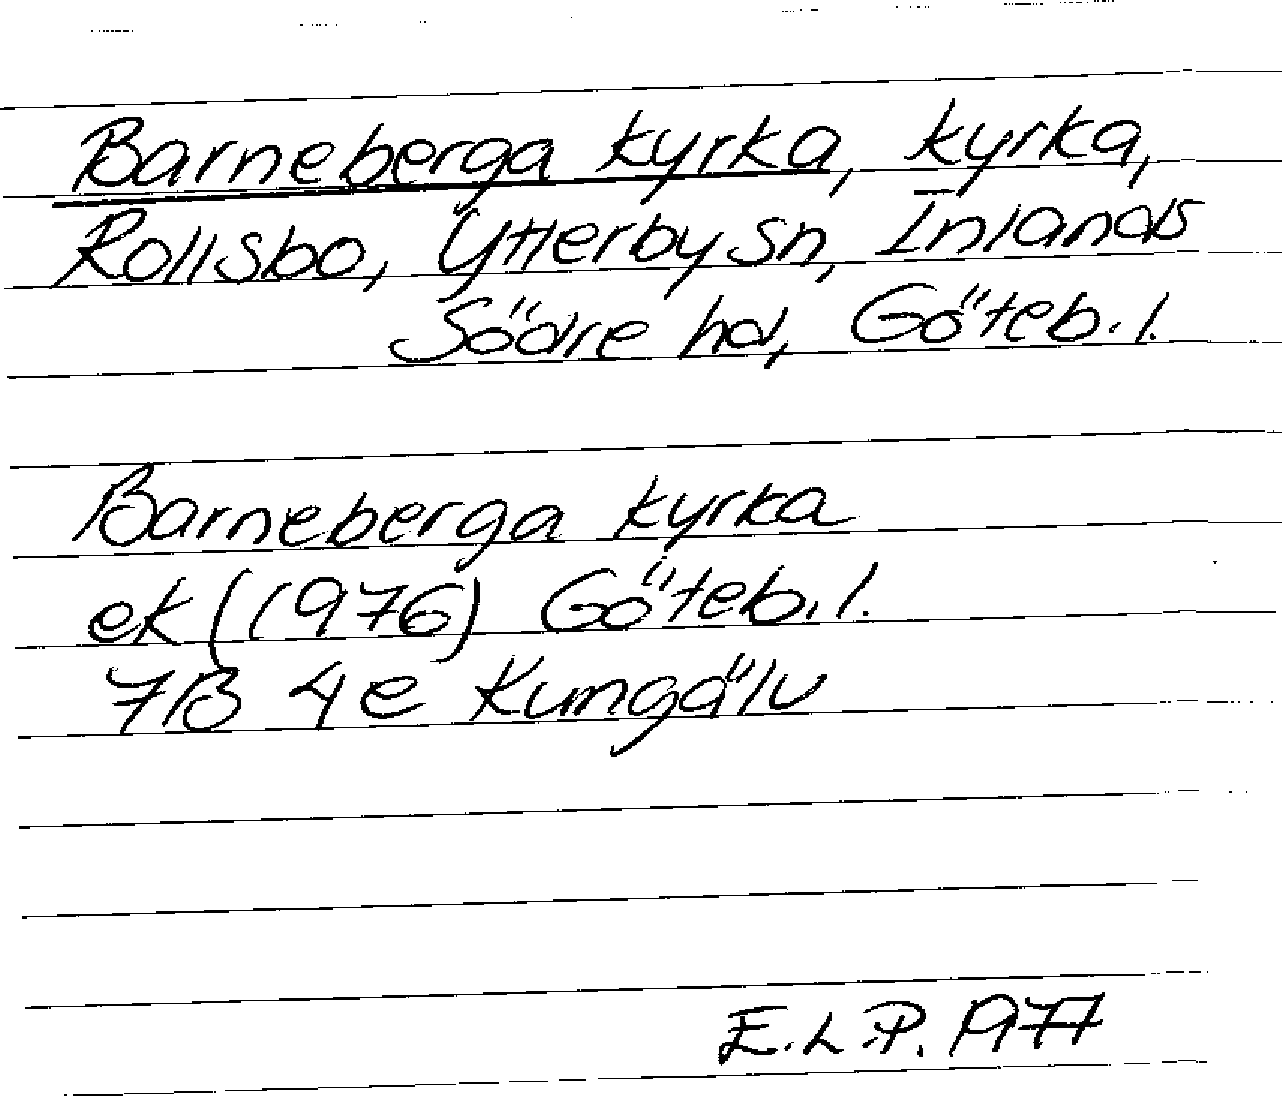 Barneberga kyrka, kyrka,
Rollsbo, Ytterby sn, Inlands
Södre hd, Göteb. l.
Barneberga kyrka
ek (1976) Göteb. l.
7B 4e Kungälv
E.L.P. 1977